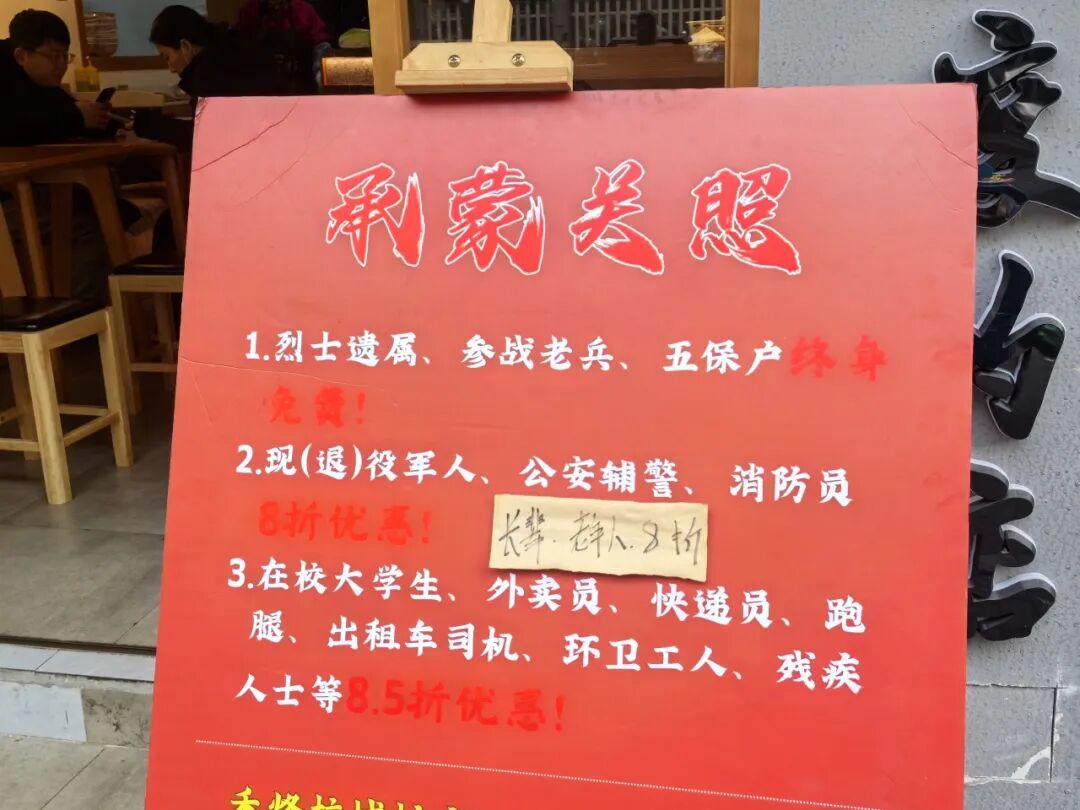 承蒙关照
1.烈士遗属、参战老兵、五保户终身
免费!
2.现(退)役军人、公安辅警、消防员
8折优惠!
长辈.老年人.8折
3.在校大学生、外卖员、快递员、跑
腿、出租车司机、环卫工人、残疾
人士等8.5折优惠!